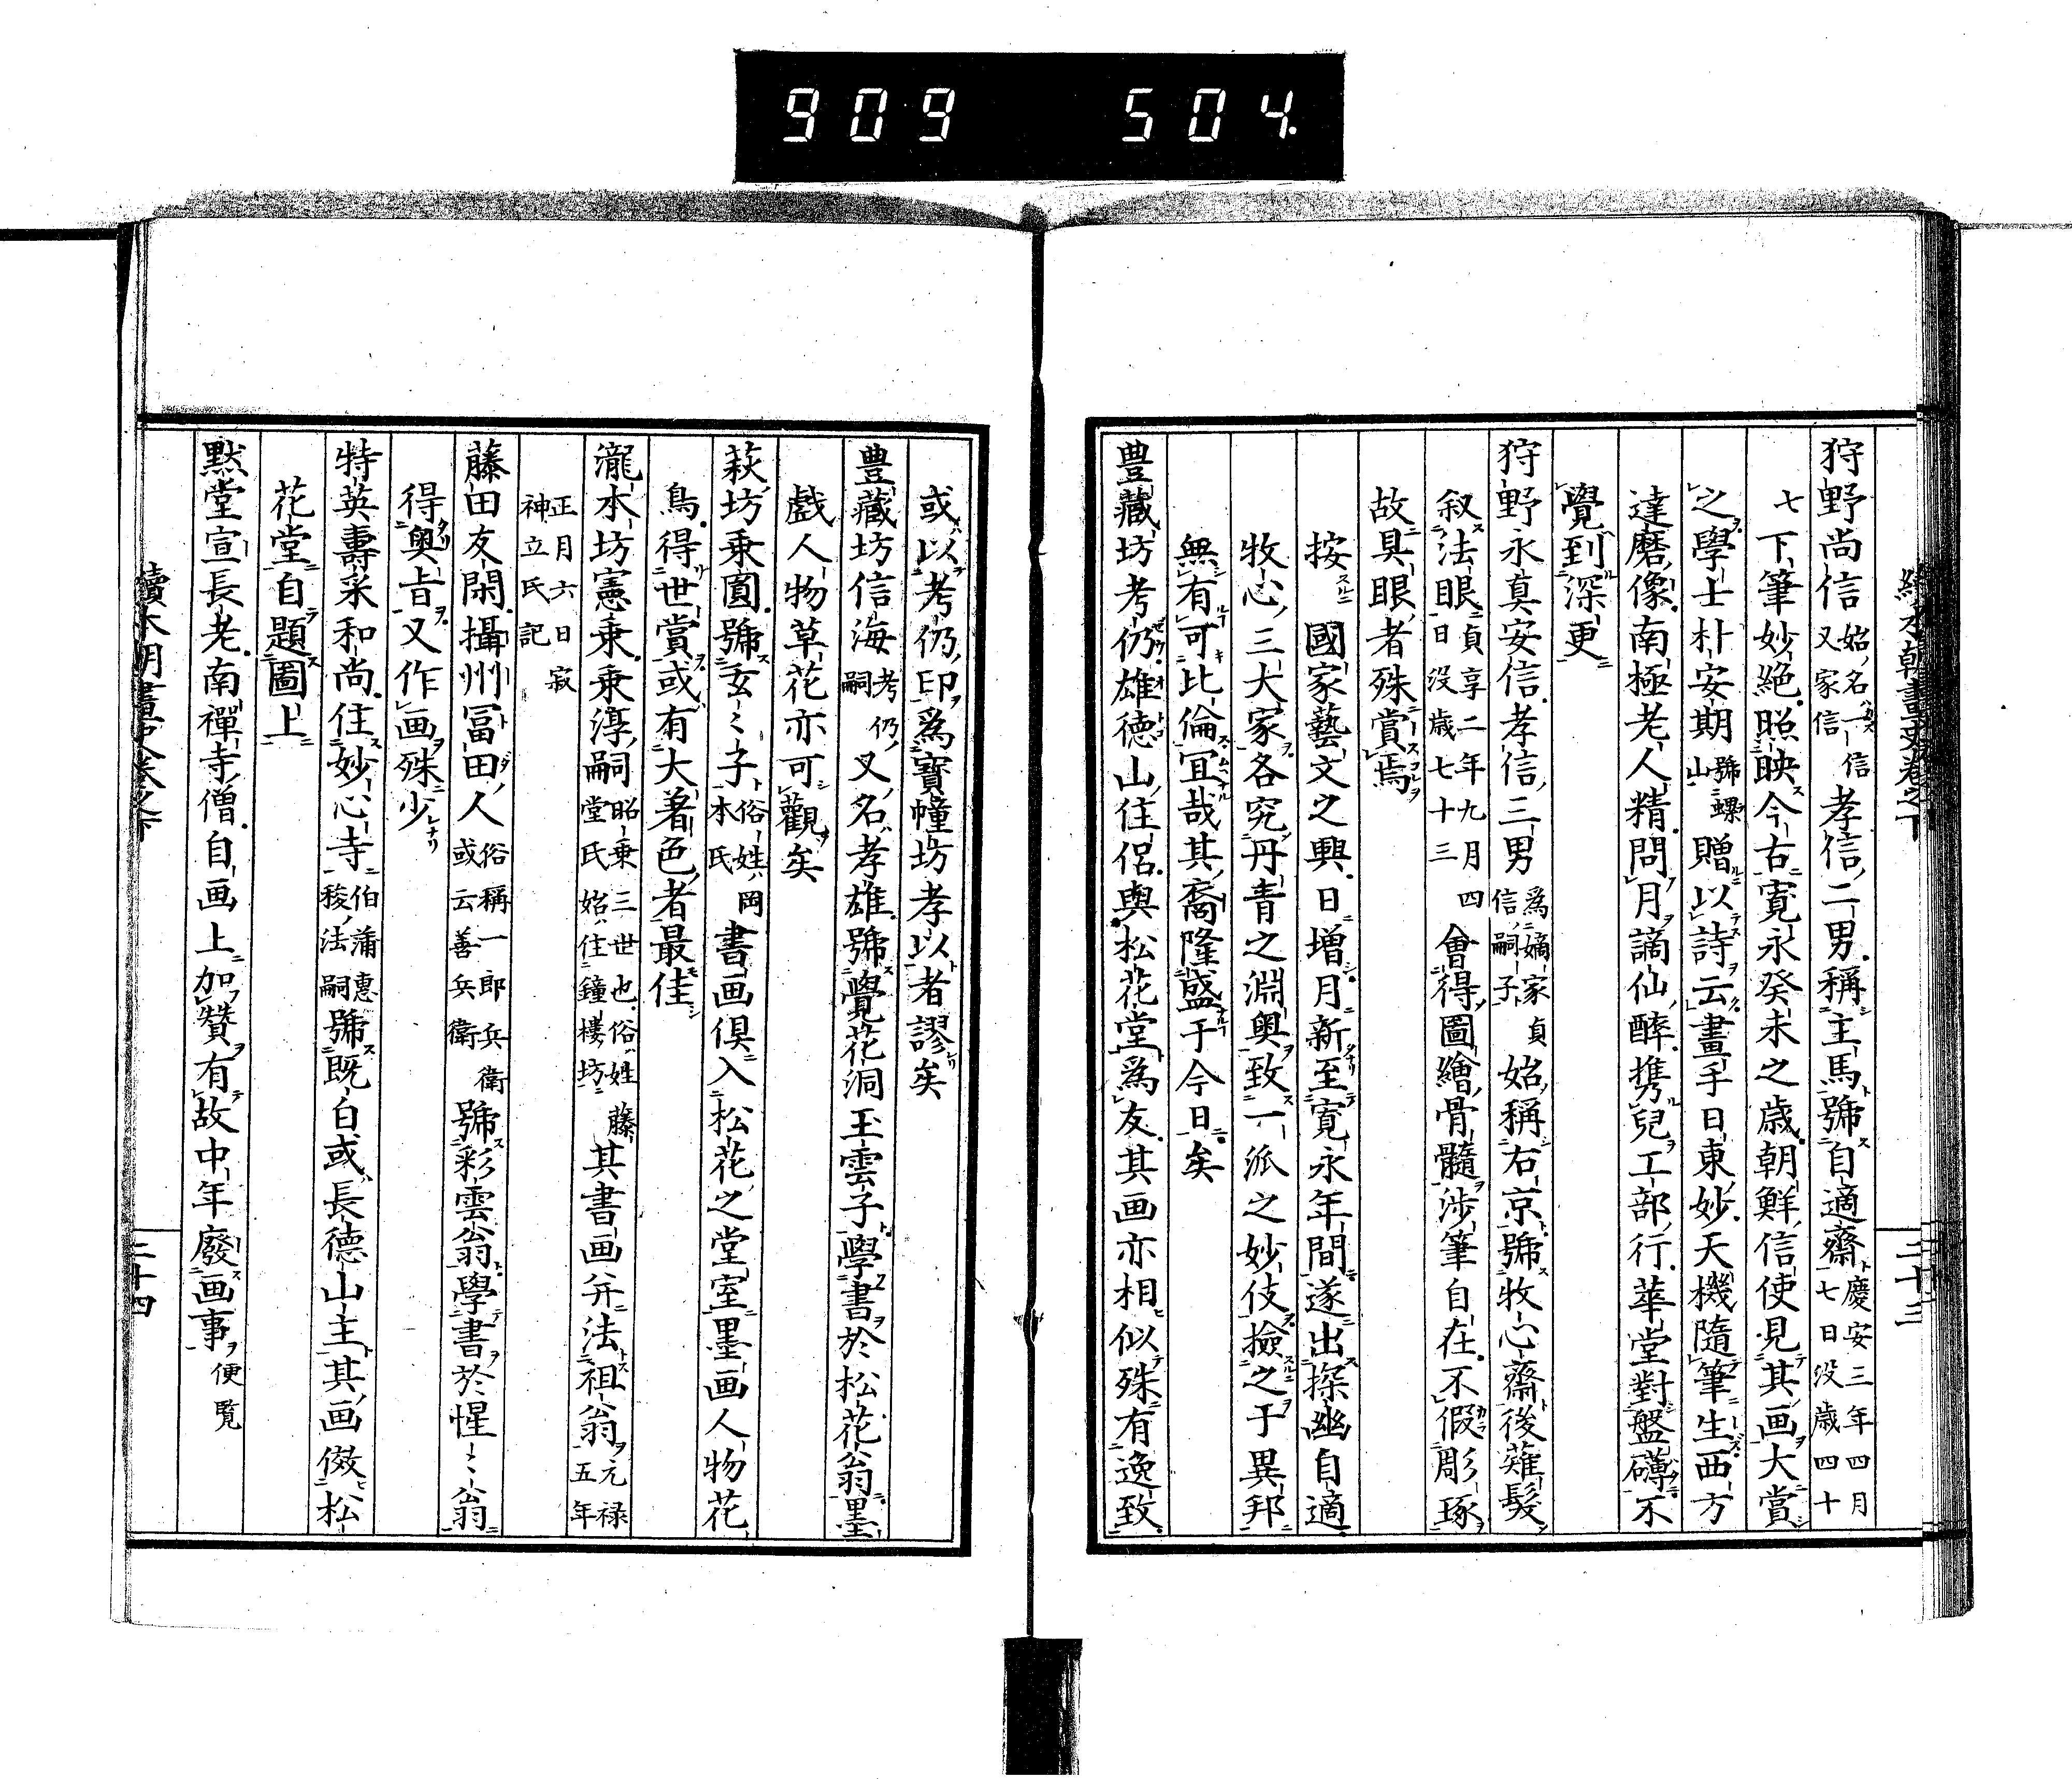 909 504.
狩野尚信始名一信又家信孝信二男稱主馬號自適齋慶安三年四月七日没歳四十
七下筆妙絶照映今古寛永癸未之歳朝鮮信使見其画大賞
之學士朴安期號螺山贈以詩云畫手日東妙天機隨筆生西方
達磨像南極老人精問月謫仙醉携兒工部行華堂對盤礴不
覺到深更
狩野永真安信孝信三男為嫡家貞信嗣子始稱右京號牧心齋後薙髮
叙法眼貞享二年九月四日没歳七十三會得圖繪骨髓渉筆自在不假彫琢
故具眼者殊賞焉
按國家藝文之興日增月新至寛永年間遂出探幽自適
牧心三大家各究丹青之淵奥致一派之妙伎撿之于異邦
無有可比倫宜哉其裔隆盛于今日矣
豊藏坊考仍雄德山住侶與松花堂爲友其画亦相似殊有逸致
續本朝畫史卷之下 二十三
或以考仍印爲寳幢坊孝以者謬矣
豊藏坊信海考仍嗣又名孝雄號覺花洞玉雲子學書於松花翁墨
戲人物草花亦可觀矣
萩坊乗圓號玄〻子俗姓岡本氏書画倶入松花之堂室墨画人物花
鳥得世賞或有大著色者最佳
瀧本坊憲乗乗淳嗣昭乗三世也俗姓藤堂氏始住鐘樓坊其書画并法祖翁元禄五年
正月六日寂神立氏記
藤田友閑攝州冨田人俗稱一郎兵衛或云善兵衛號彩雲翁學書於惺〻翁
得奥旨又作画殊少
特英壽采和尚住妙心寺伯蒲惠稜法嗣號既白或長德山主其画倣松
花堂自題圖上
黙堂宣長老南禪寺僧自画上加贊有故中年廢画事便覧
續本朝畫史卷之下 二十四